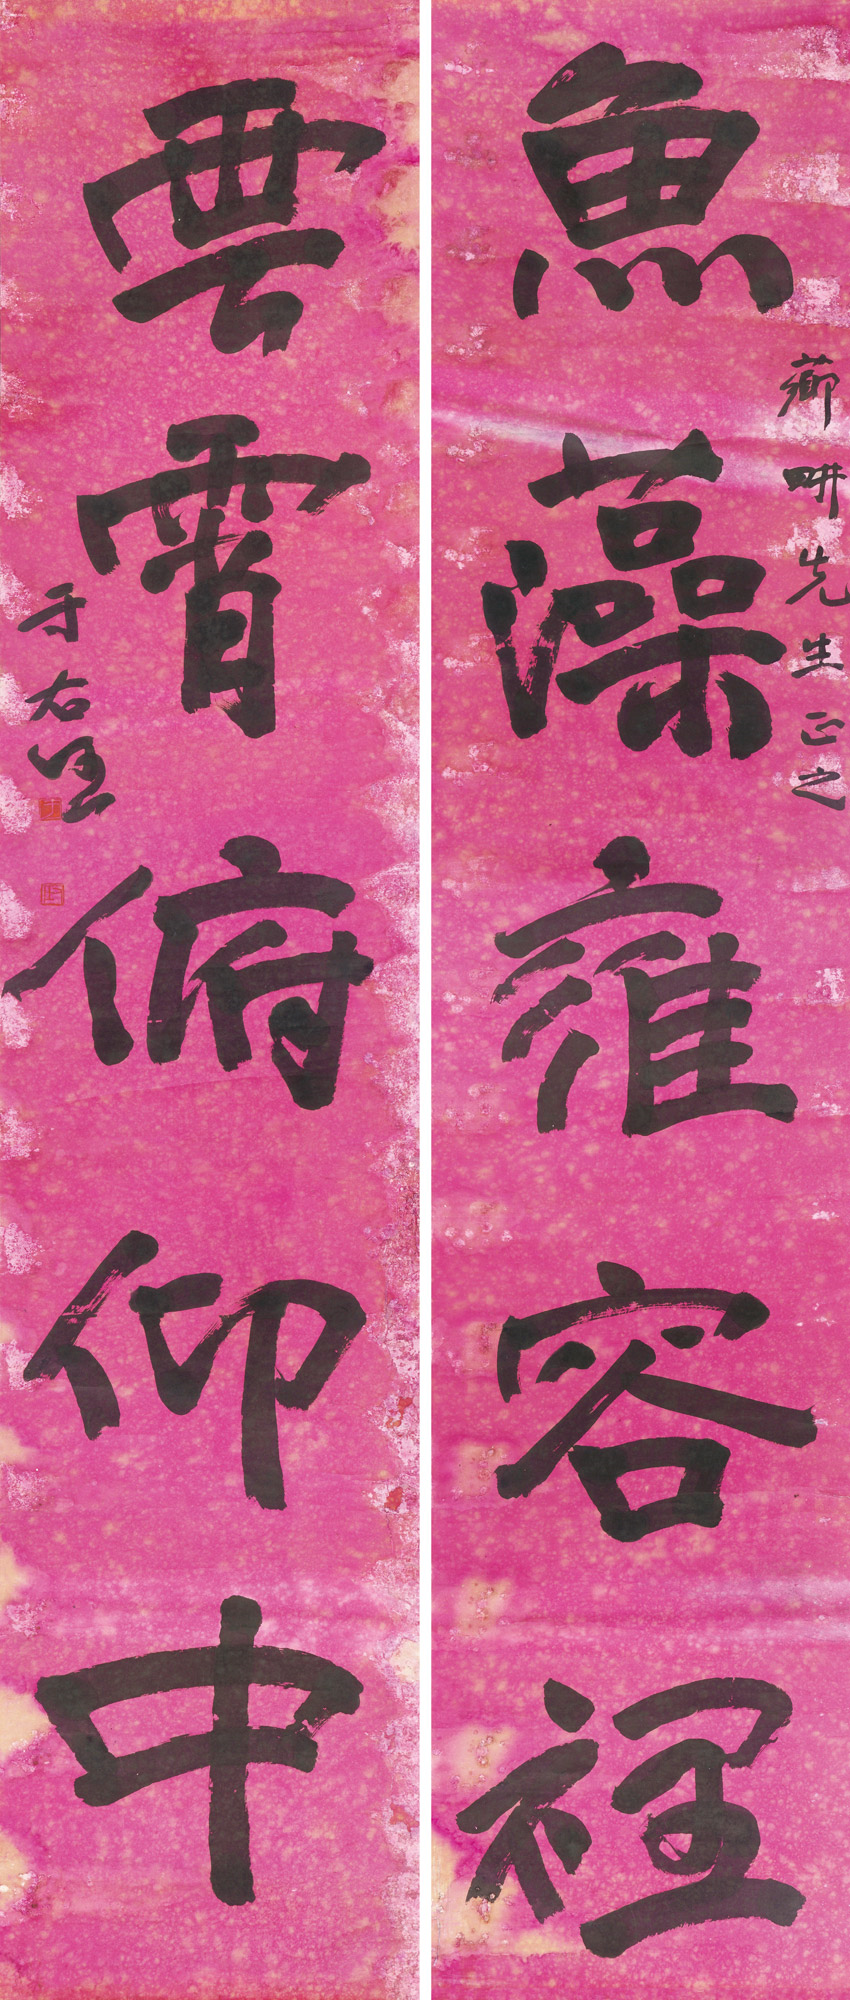 魚藻雍容裡
先生正之
雲霄俯仰中
于右任